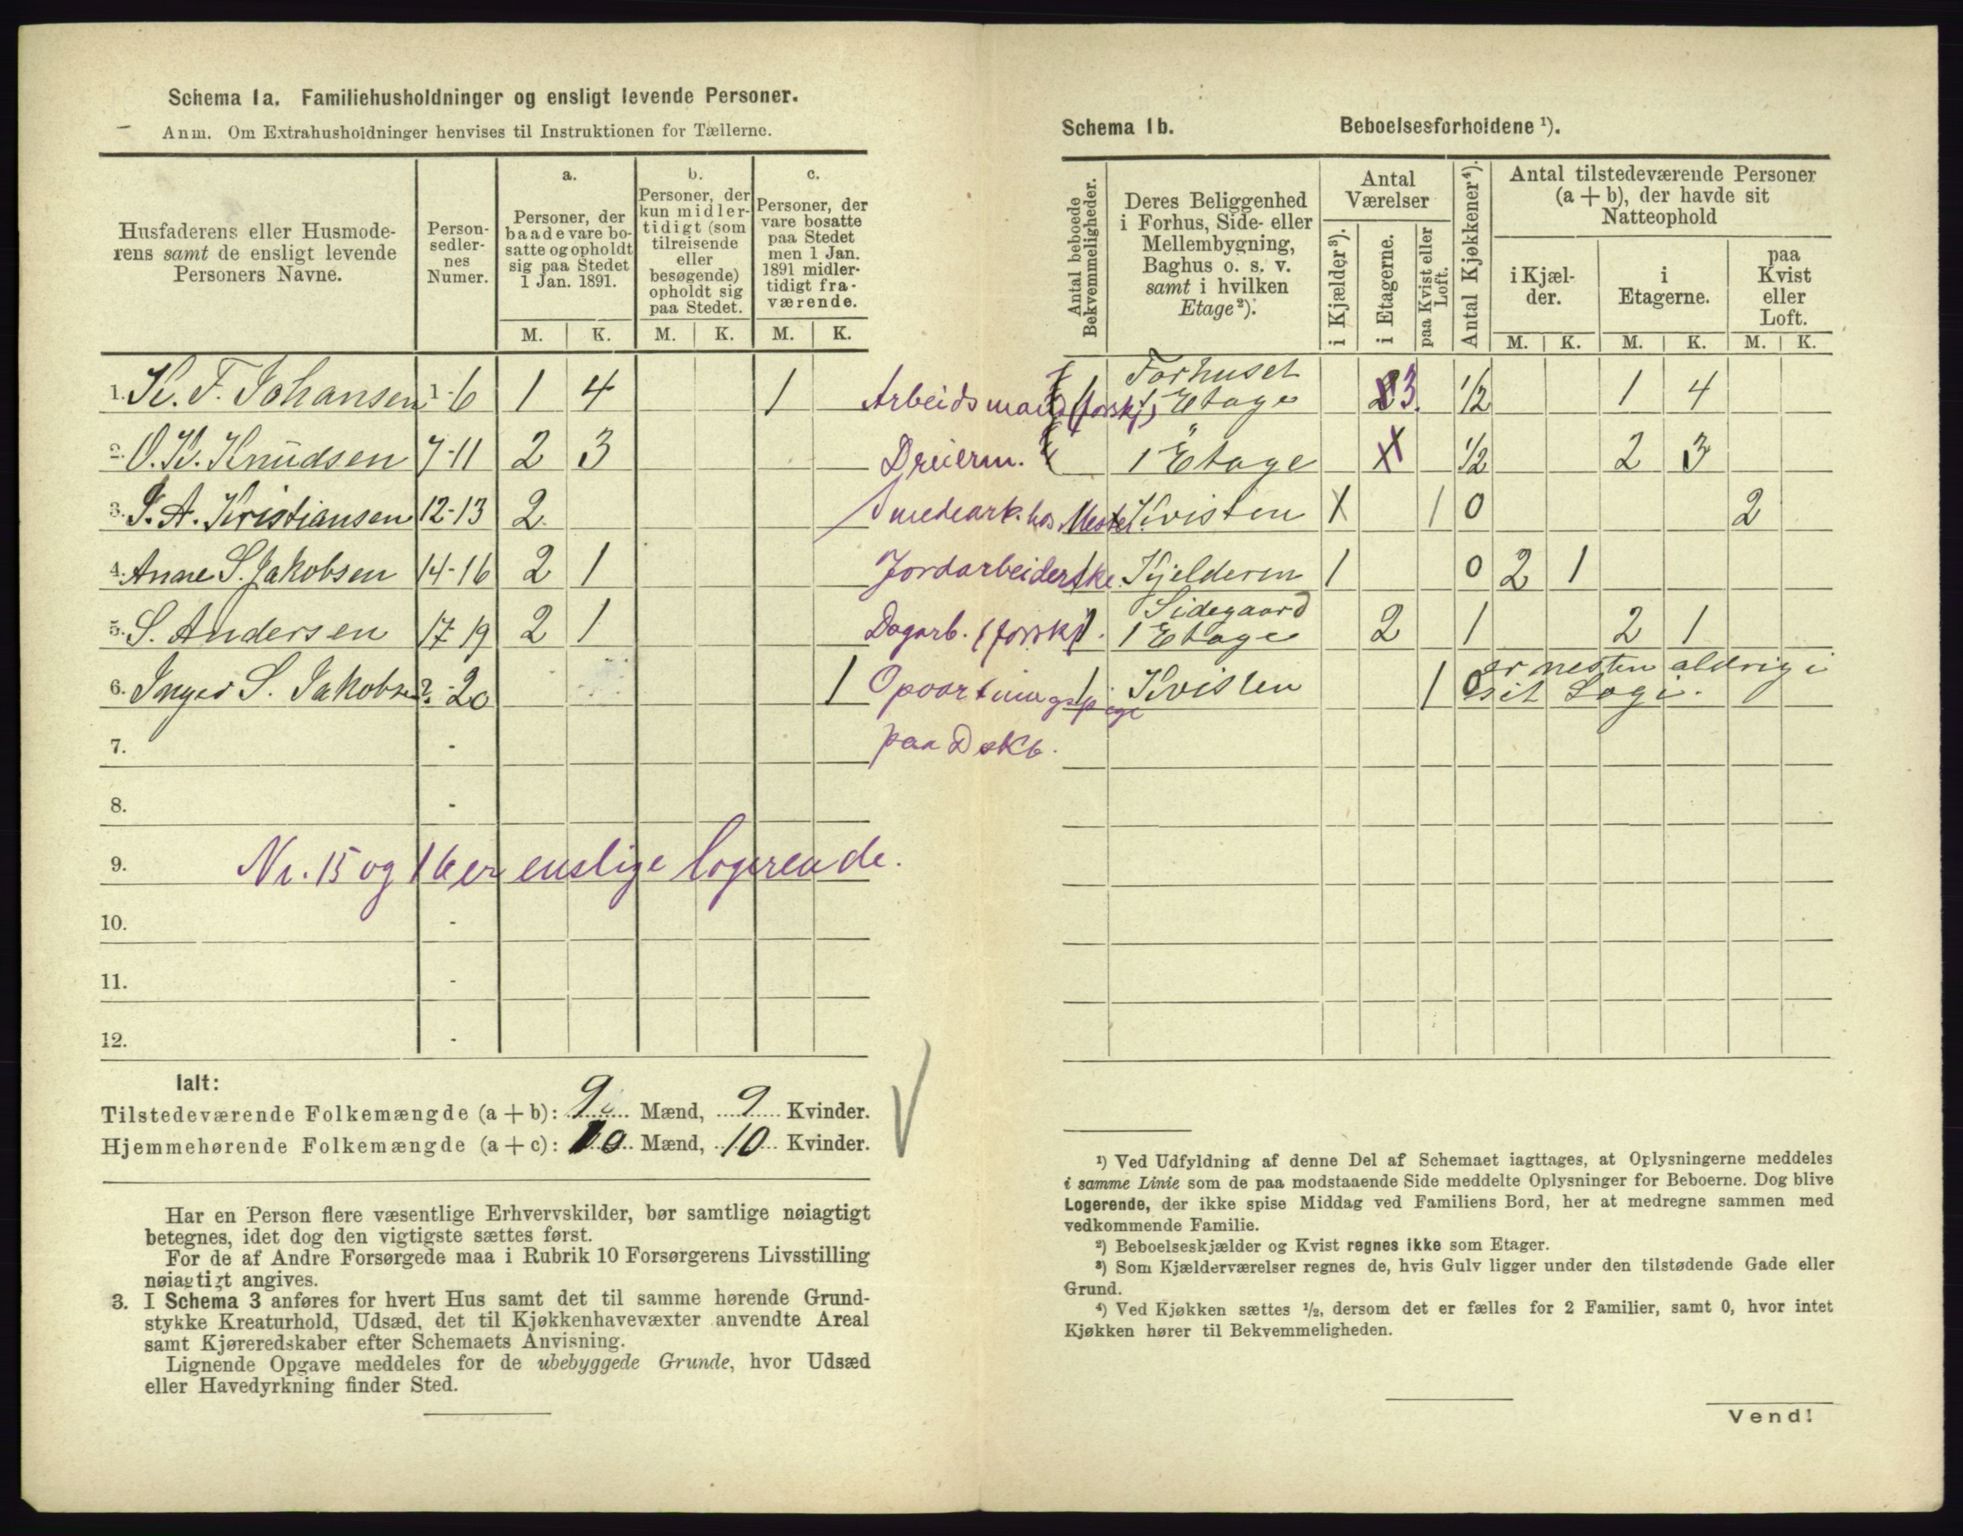 Schema 1a. Familiehusholdninger og ensligt levende Personer.
Anm. Om Extrahusholdninger henvises til Instruktionen for Tællerne.
Husfaderens eller Husmoderens samt de ensligt levende Personers Navne.
Person-sedler-nes Numer.
a.
Personer, der baade vare bosatte og opholdt sig paa Stedet 1 Jan. 1891.
b.
Personer, der kun midlertidigt (som tilreisende eller besøgende) opholdt sig paa Stedet.
c.
Personer, der vare bosatte paa Stedet men 1 Jan. 1891 midlertidigt fraværende.
M. K. M. K. M. K.
1. K. F. Johansen 1-6 1 4 1 Arbeidsmand (forskj)
2. O. K. Knudsen 7-11 2 3 Dreierm.
3. J. A. Kristiansen 12-13 2 Smedearb. hos Mester
4. Anne S. Jakobsen 14-16 2 1 Jordarbeiderske
5. S. Andersen 17-19 2 1 Dagarb. (forskj).
6. Inger S. Jakobsen 20 1 Opvartningspige
7. - paa Dskb.
8. -
9. Nr. 15 og 16 er enslige logerende.
10. -
11. -
12. -
Ialt:
Tilstedeværende Folkemængde (a + b): 9 Mænd, 9 Kvinder.
Hjemmehørende Folkemængde (a + c): 10 Mænd, 10 Kvinder.
Har en Person flere væsentlige Erhvervskilder, bør samtlige nøiagtigt
betegnes, idet dog den vigtigste sættes først.
For de af Andre Forsørgede maa i Rubrik 10 Forsørgerens Livsstilling
nøiagtigt angives.
3. I Schema 3 anføres for hvert Hus samt det til samme hørende Grund-
stykke Kreaturhold, Udsæd, det til Kjøkkenhavevæxter anvendte Areal
samt Kjøreredskaber efter Schemaets Anvisning.
Lignende Opgave meddeles for de ubebyggede Grunde, hvor Udsæd
eller Havedyrkning finder Sted.
Schema 1b. Beboelsesforholdene ¹).
Antal beboede Bekvemmeligheder.
Deres Beliggenhed i Forhus, Side- eller Mellembygning, Baghus o. s. v. samt i hvilken Etage²).
Antal Værelser
i Kjælder³).
i Etagerne.
paa Kvist eller Loft.
Antal Kjøkkener⁴).
Antal tilstedeværende Personer (a + b), der havde sit Natteophold
i Kjælder.
i Etagerne.
paa Kvist eller Loft.
M. K. M. K. M. K.
1 Forhuset 1 Etage 3 1/2 1 4
1 Etage X 1/2 2 3
Kvisten X 1 0 2
1 Kjelderen 1 0 2 1
1 Sidegaard 1 Etage 2 1 2 1
1 Kvisten 1 0 er nesten aldrig i
sit Logi.
¹) Ved Udfyldning af denne Del af Schemaet iagttages, at Oplysningerne meddeles
i samme Linie som de paa modstaaende Side meddelte Oplysninger for Beboerne. Dog blive
Logerende, der ikke spise Middag ved Familiens Bord, her at medregne sammen med
vedkommende Familie.
²) Beboelseskjælder og Kvist regnes ikke som Etager.
³) Som Kjælderværelser regnes de, hvis Gulv ligger under den tilstødende Gade eller
Grund.
⁴) Ved Kjøkken sættes ½, dersom det er fælles for 2 Familier, samt 0, hvor intet
Kjøkken hører til Bekvemmeligheden.
Vend!